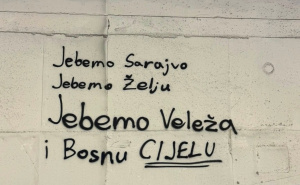 Jebemo Sarajvo
Jebemo Želju
Jebemo Veleža
i Bosnu CIJELU